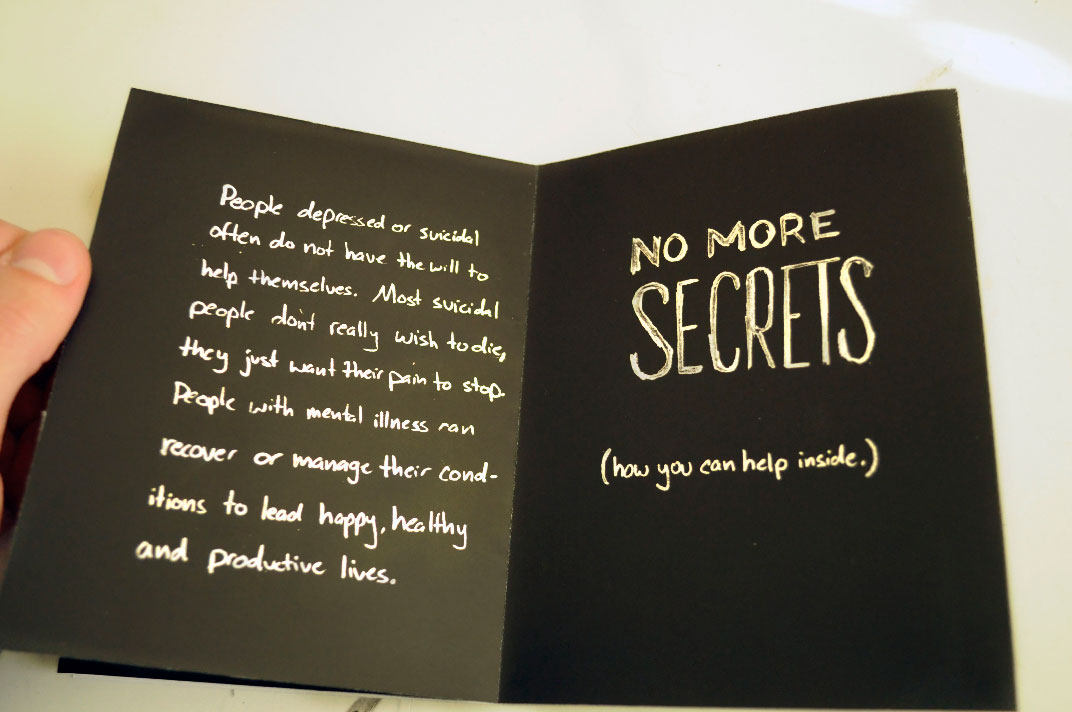 People depressed or suicidal
often do not have the will to
help themselves. Most suicidal
people don't really wish to die,
they just want their pain to stop.
People with mental illness can
recover or manage their cond-
itions to lead happy, healthy
and productive lives.
NO MORE
SECRETS
(how you can help inside.)